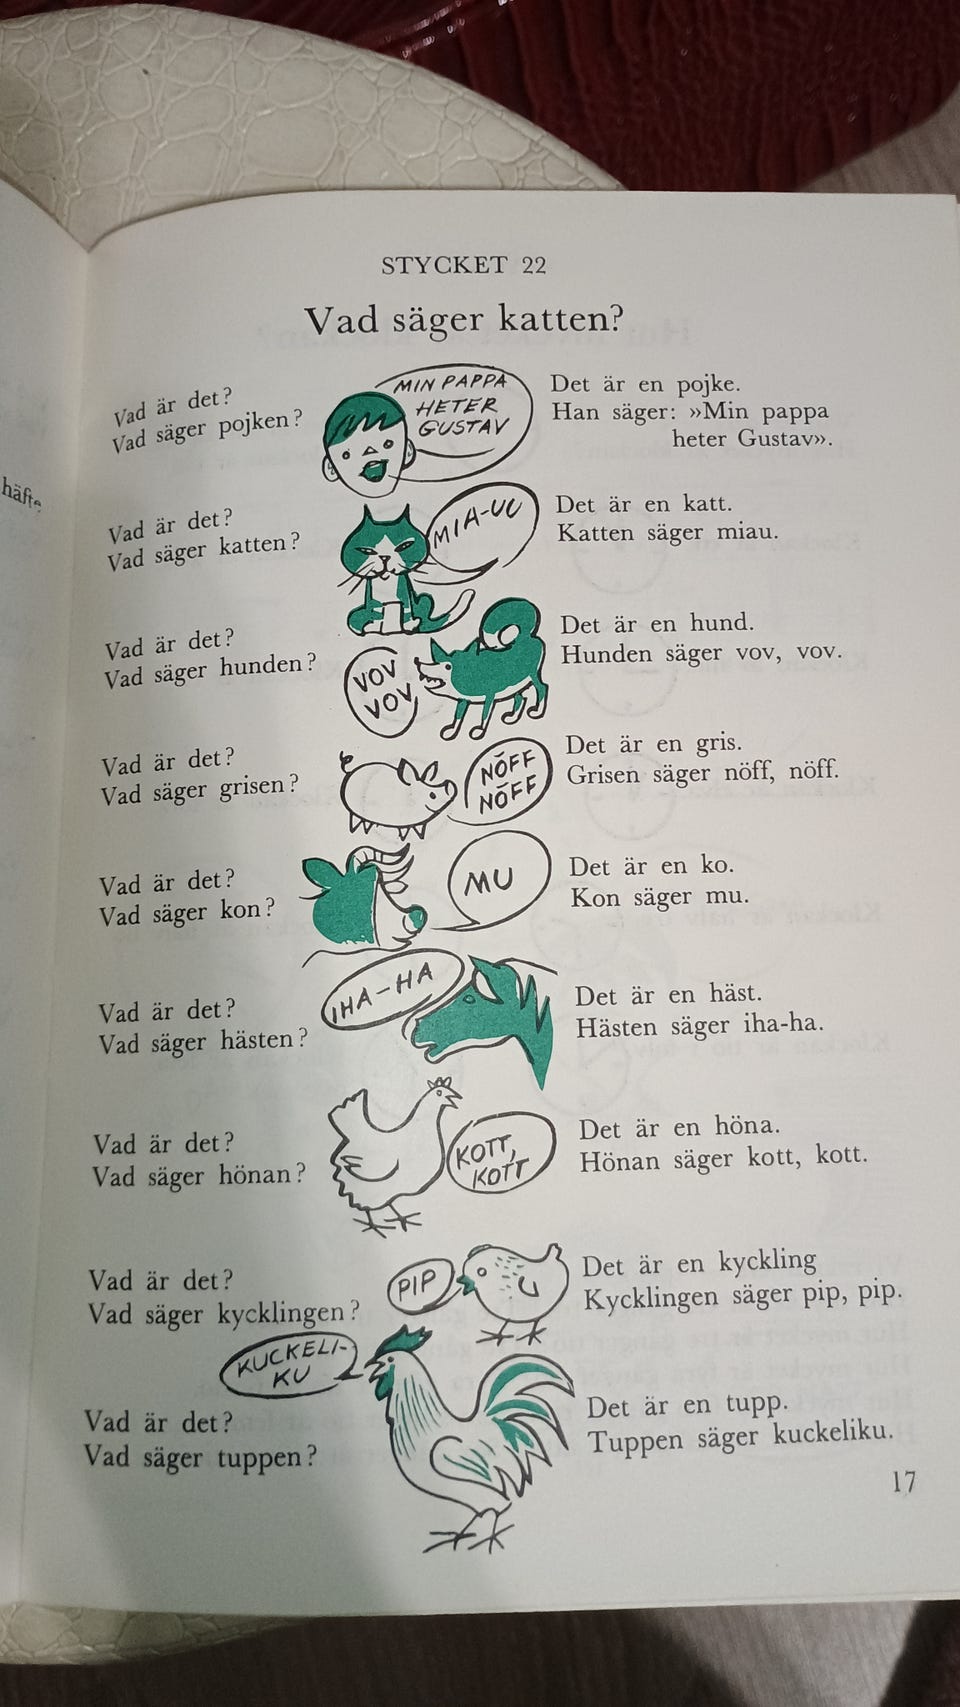 häfte
STYCKET 22
Vad säger katten?
Vad är det?
Vad säger pojken?
MIN PAPPA
HETER
GUSTAV
Det är en pojke.
Han säger: »Min pappa
heter Gustav».
Vad är det?
Vad säger katten?
MIA-UU
Det är en katt.
Katten säger miau.
Vad är det?
Vad säger hunden?
VOV
VOV
Det är en hund.
Hunden säger vov, vov.
Vad är det?
Vad säger grisen?
NÖFF
NÖFF
Det är en gris.
Grisen säger nöff, nöff.
Vad är det?
Vad säger kon?
MU
Det är en ko.
Kon säger mu.
Vad är det?
Vad säger hästen?
IHA-HA
Det är en häst.
Hästen säger iha-ha.
Vad är det?
Vad säger hönan?
KOTT,
KOTT
Det är en höna.
Hönan säger kott, kott.
Vad är det?
Vad säger kycklingen?
PIP
Det är en kyckling
Kycklingen säger pip, pip.
KUCKELI-
KU
Vad är det?
Vad säger tuppen?
Det är en tupp.
Tuppen säger kuckeliku.
17